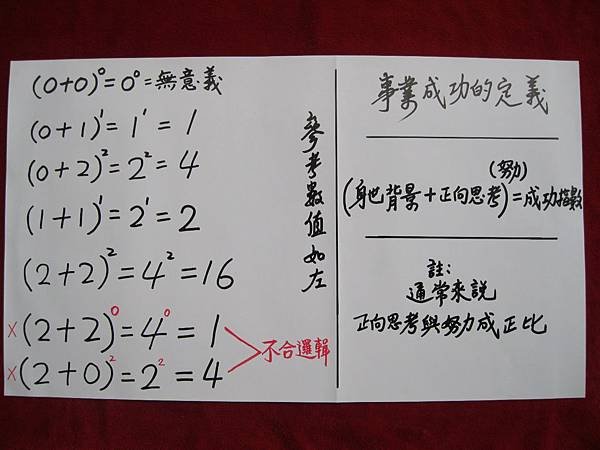 (0+0)⁰=0⁰=無意義
(0+1)¹=1¹=1
(0+2)²=2²=4
(1+1)¹=2¹=2
(2+2)²=4²=16
×(2+2)⁰=4⁰=1
×(2+0)²=2²=4
不合邏輯
參考數值如左
事業成功的定義
(身世背景+正向思考)⁽努力⁾=成功指數
註:
通常來説
正向思考與努力成正比